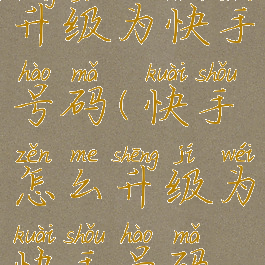 升级为快手
hào mǎ kuài shǒu
号码(快手
zěn me shēng jí wéi
怎么升级为
kuài shǒu hào mǎ
快手号码